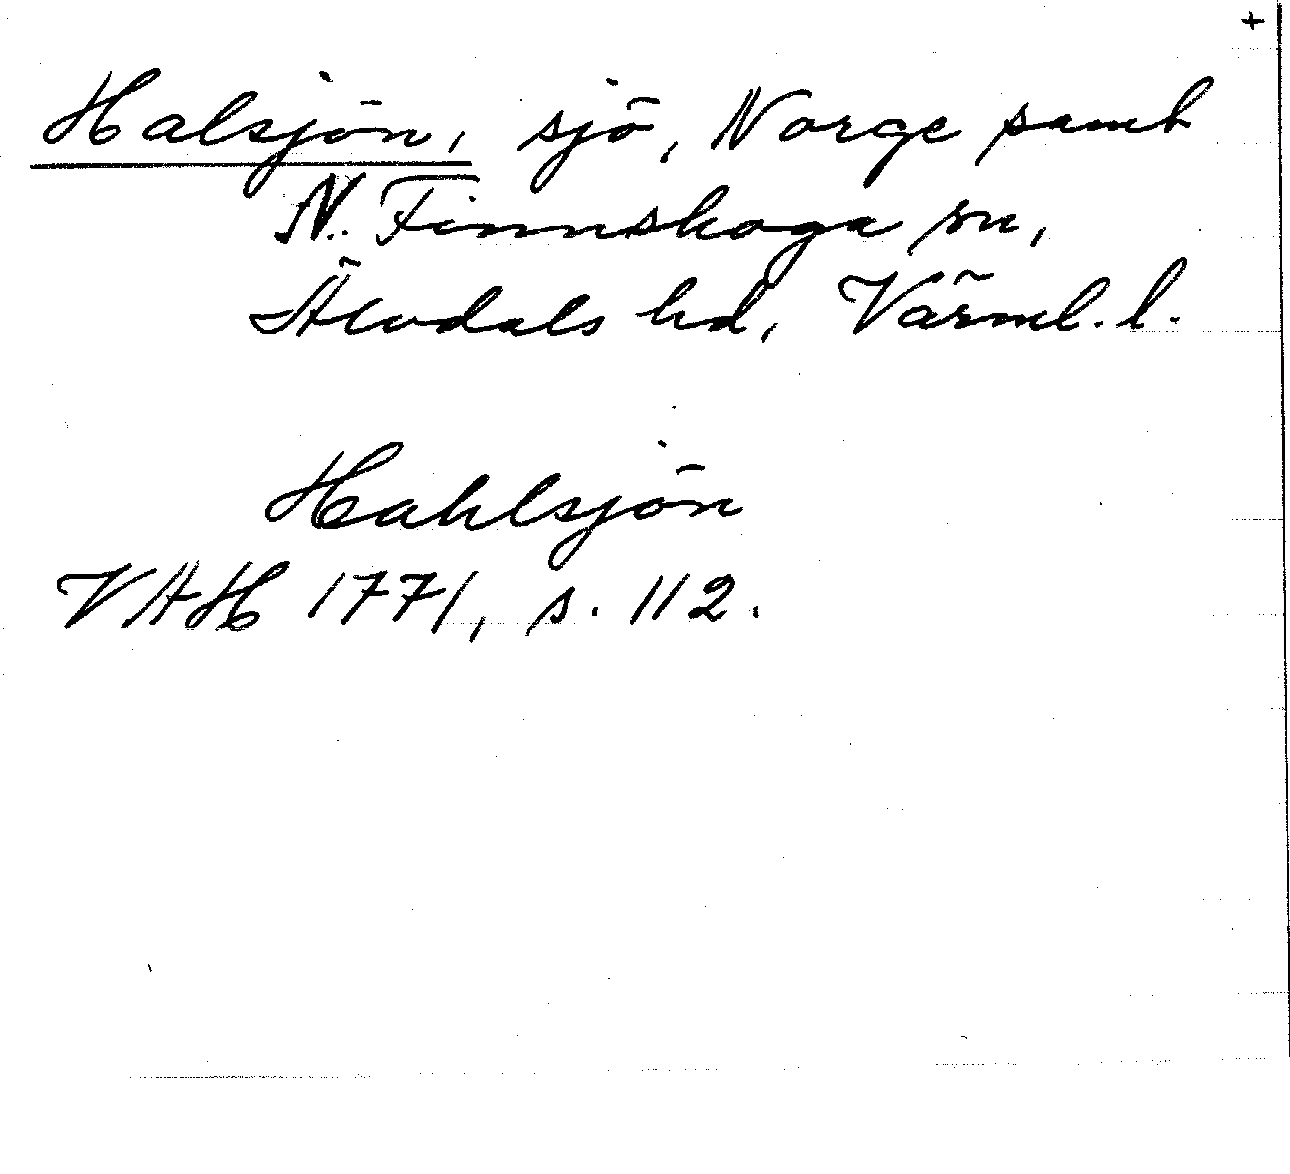 +
Halsjön, sjö, Norge samt
N. Finnskoga sn,
Älvdals hd, Värml. l.
Hahlsjön
VAH 1771, s. 112.